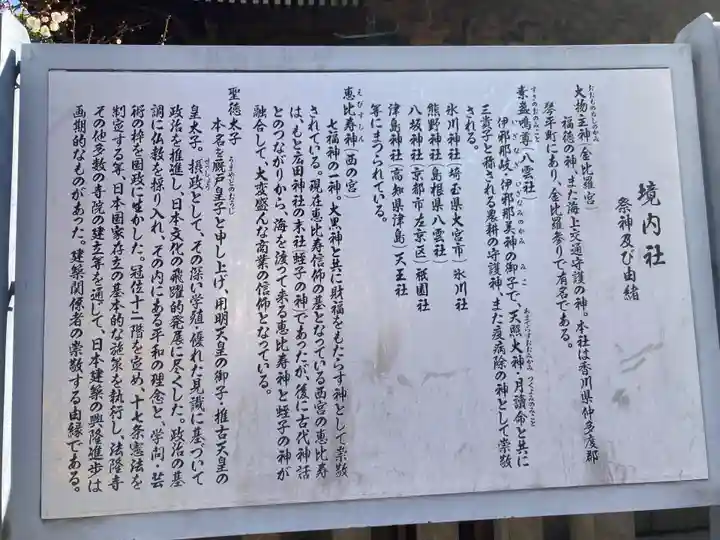 境内社
祭神及び由緒
大物主神(金比羅宮)
おおものぬしのかみ
福徳の神、また海上交通守護の神。本社は香川県仲多度郡
琴平町にあり、金比羅参りで有名である。
素盞鳴尊(八雲社)
すさのおのみこと
伊邪那岐・伊邪那美神の御子で、天照大神・月讀命と共に
いざなぎ いざなみのかみ みこ あまてらすおおみかみ つくよみのみこと
三貴子と称される農耕の守護神、また疫病除の神として崇敬
される。
氷川神社(埼玉県大宮市)氷川社
熊野神社(島根県八雲社)
八坂神社(京都市左京区)祇園社
津島神社(高知県津島)天王社
等にまつられている。
恵比寿神(西の宮)
えびすしん
七福神の一神。大黒神と共に財福をもたらす神として崇敬
されている。現在恵比寿信仰の基となっている西宮の恵比寿
は、もと広田神社の末社(蛭子の神)であったが、後に古代神話
とのつながりから、海を渡って来る恵比寿神と蛭子の神が
融合して、大変盛んな商業の信仰となっている。
聖徳太子
本名を厩戸皇子と申し上げ、用明天皇の御子、推古天皇の
うまやどのおうじ
皇太子。摂政として、その深い学殖・優れた見識に基づいて
せっしょう
政治を推進し、日本文化の飛躍的発展に尽くした。政治の基
調に仏教を採り入れ、その内にある平和の理念と、学問・芸
術の枠を国政に生かした。冠位十二階を定め、十七条憲法を
制定する等、日本国家存立の基本的な施策を執行し、法隆寺
その他多数の寺院の建立等を通して、日本建築の興隆進歩は
画期的なものがあった。建築関係者の崇敬する由縁である。